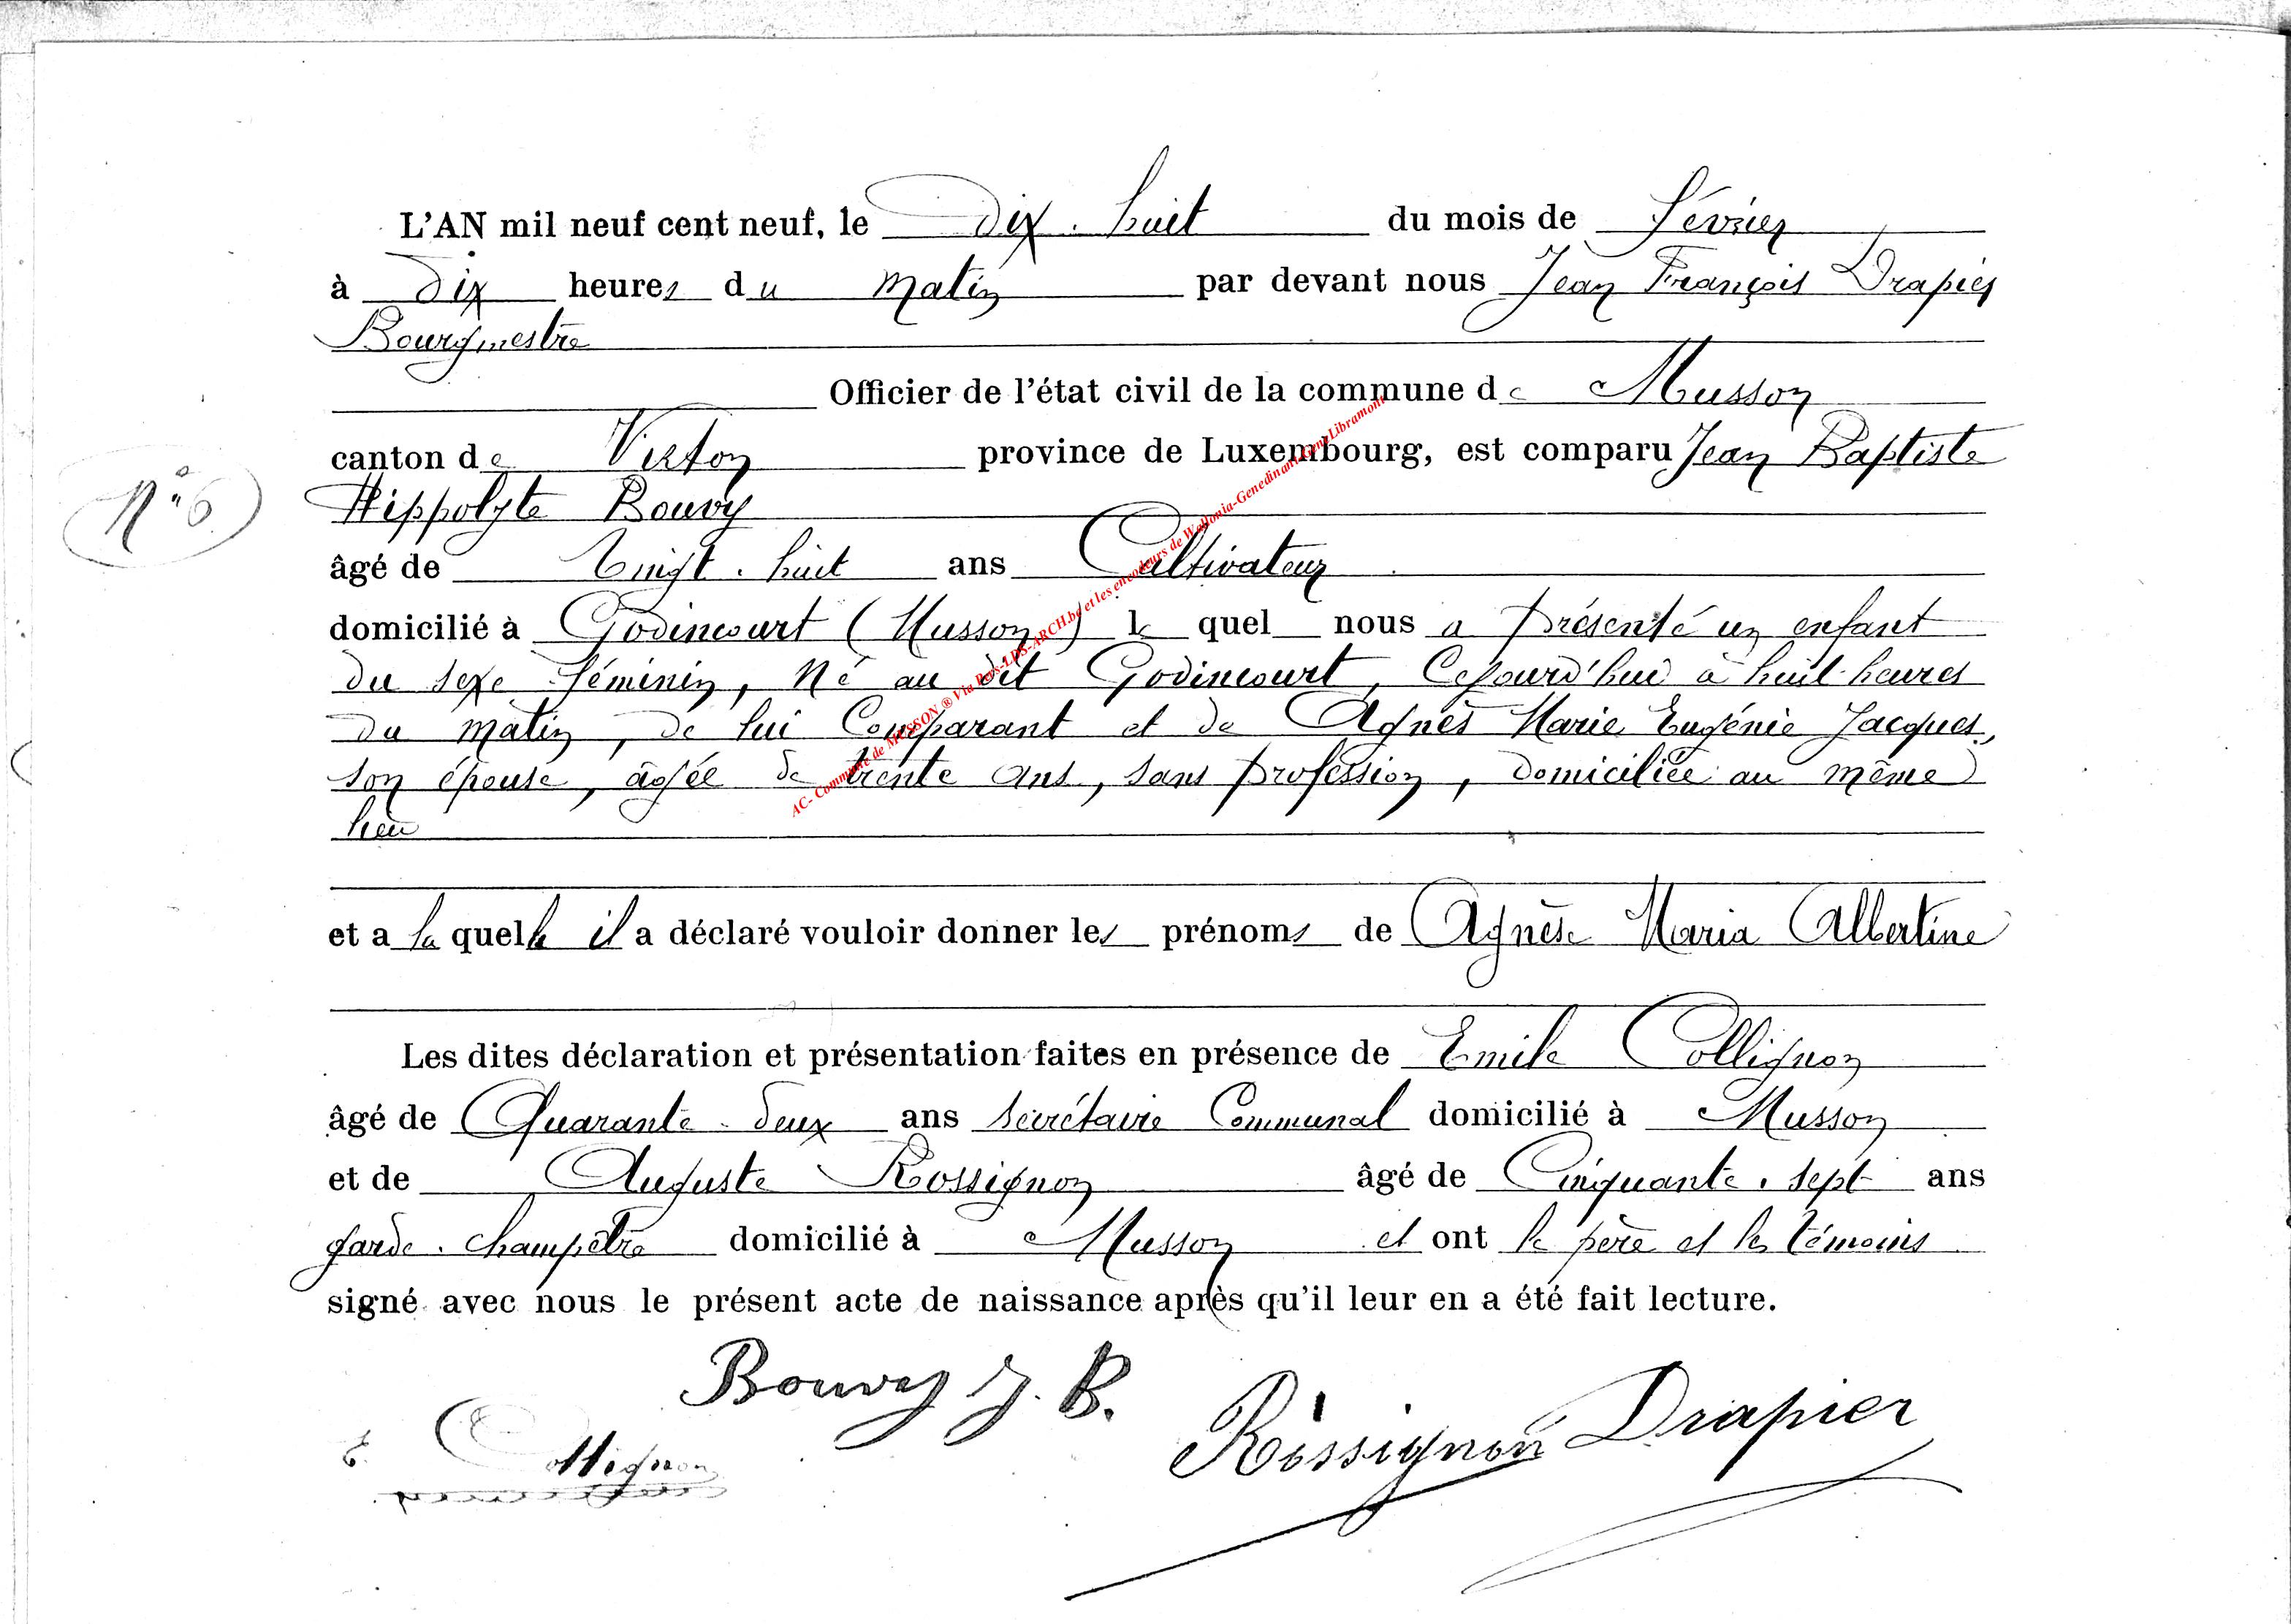 L'AN mil neuf cent neuf, le Dix-huit du mois de février
à Dix heures du matin par devant nous Jean François Drapier
Bourgmestre
Officier de l'état civil de la commune de Musson
canton de Virton province de Luxembourg, est comparu Jean Baptiste
N° 6
Hippolyte Bouvy
âgé de Vingt-huit ans Cultivateur
domicilié à Godincourt (Musson) le quel nous a présenté un enfant
du sexe féminin, né au dit Godincourt, Cejourd'hui à huit heures
du matin, de lui Comparant et de Agnès Marie Eugénie Jacques,
son épouse, âgée de trente ans, sans profession, domiciliée au même
lieu
et a la quelle il a déclaré vouloir donner les prénoms de Agnèse Maria Albertine
Les dites déclaration et présentation faites en présence de Emile Collignon
âgé de Quarante-deux ans secrétaire Communal domicilié à Musson
et de Auguste Rossignon âgé de Cinquante-sept ans
garde-champêtre domicilié à Musson et ont le père et les témoins
signé avec nous le présent acte de naissance après qu'il leur en a été fait lecture.
Bouvy J. B.
E. Collignon
Rossignon
Drapier
AC- Commune de MUSSON ® Via Pros-LDS-ARCH.be et les encodeurs de Wallonia-Genedinant-Gene Libramont